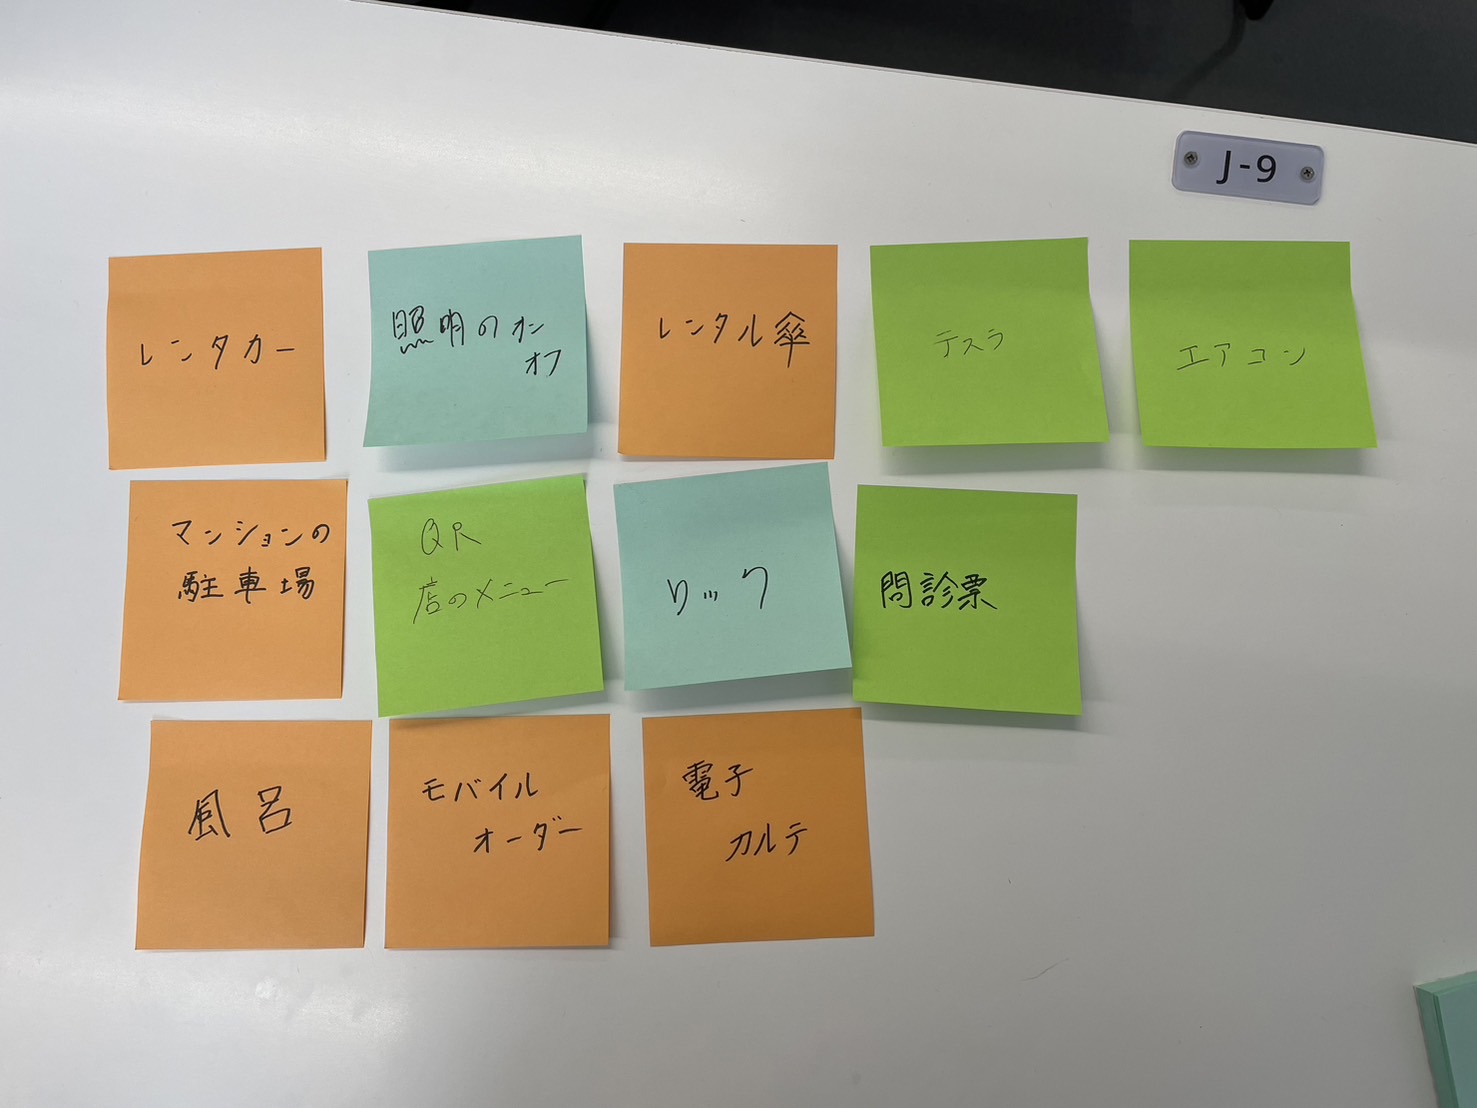 J-9
レンタカー
照明のオン
オフ
レンタル傘
テスラ
エアコン
マンションの
駐車場
QR
店のメニュー
ロック
問診票
風呂
モバイル
オーダー
電子
カルテ